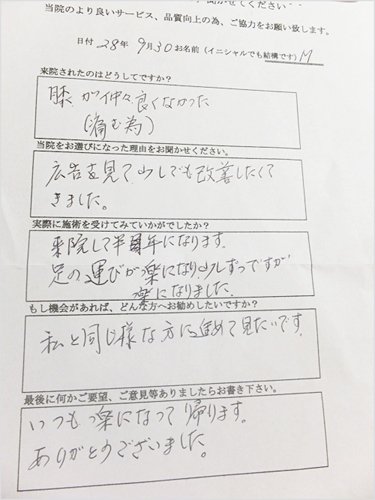 聞かせてください
当院のより良いサービス、品質向上の為、ご協力をお願い致します。
日付 28年 9月30 お名前(イニシャルでも結構です) M
来院されたのはどうしてですか?
膝が仲々良くなかった
(痛む為)
当院をお選びになった理由をお聞かせください。
広告を見て少しでも改善したくて
きました。
実際に施術を受けてみていかがでしたか?
来院して半年になります。
足の運びが楽になり少しずつですが
楽になりました。
もし機会があれば、どんな方へお勧めしたいですか?
私と同じ様な方に進めて見たいです。
最後に何かご要望、ご意見等ありましたらお書き下さい。
いつも楽になって帰ります。
ありがとうございました。